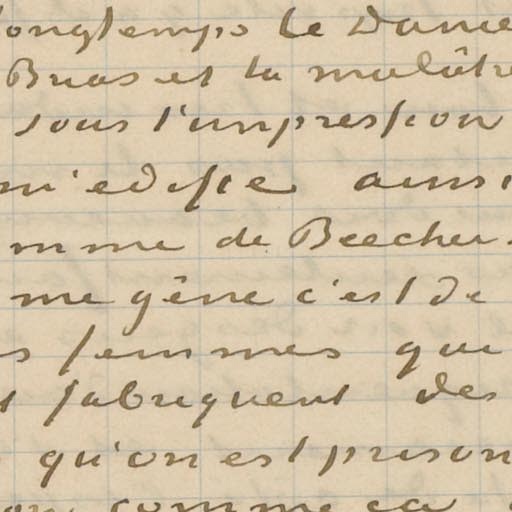 longtemps le Dame
Bras et la mulâtre
sous l'impression
m'edifie ainsi
mme de Beecher.
me gêne c'est de
s femmes qui
t fabriquent des
qu'on est prison
comme ça